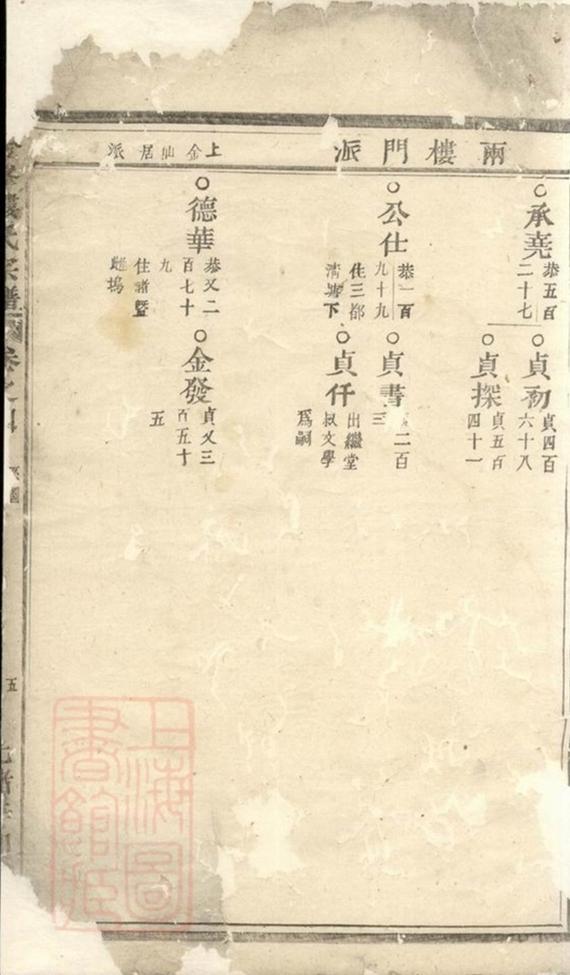 兩樓門派
承堯
恭五百
二十七
貞初
貞四百
六十八
貞探
貞五百
四十一
公仕
恭一百
九十九
住三都
清塘下
貞書
二百
三
貞仟
出繼堂
叔文學
爲嗣
上金仙居派
德華
恭又二
百七十
九
住諸暨
塢
金發
貞又三
百五十
五
氏宗譜
卷之
五
上海圖
書館藏